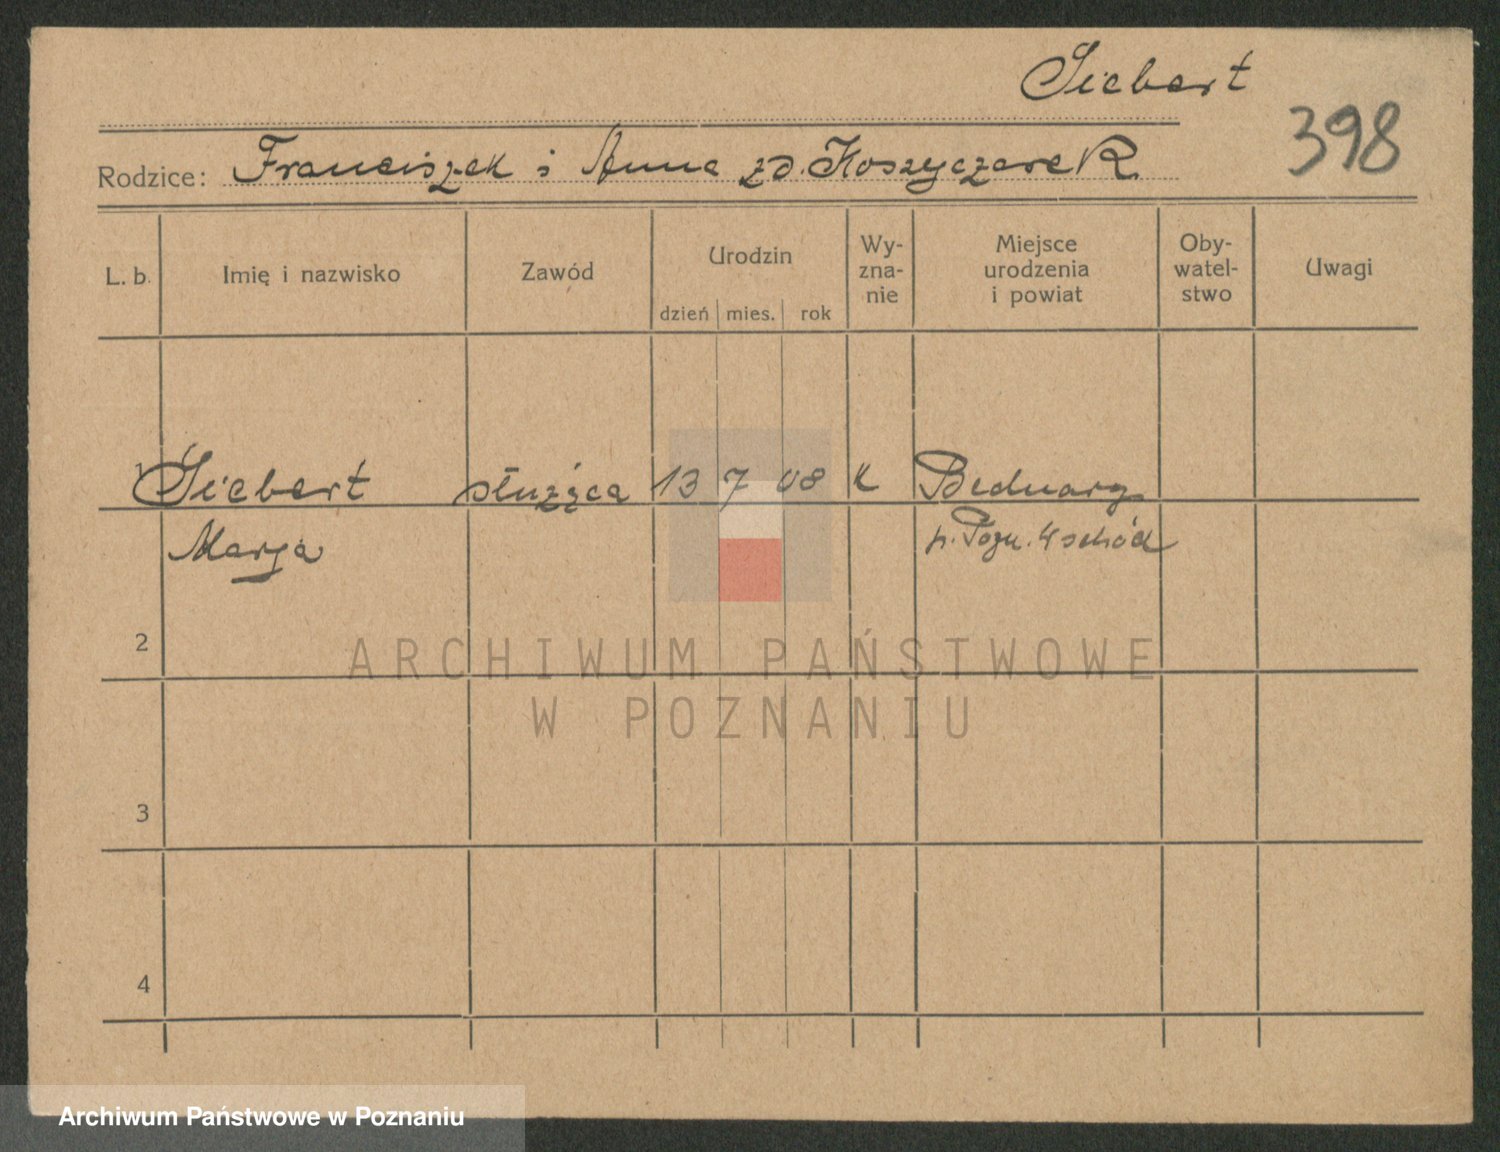 Siebert
398
Rodzice: Franciszek i Anna zd. Koszyczarek
L. b. Imię i nazwisko Zawód Urodzin dzień mies. rok Wy-zna-nie Miejsce urodzenia i powiat Oby-watel-stwo Uwagi
1 Siebert służąca 13 7 08 K Bednary
Marja p. Pozn. Wschód
2
ARCHIWUM PAŃSTWOWE
W POZNANIU
3
4
Archiwum Państwowe w Poznaniu